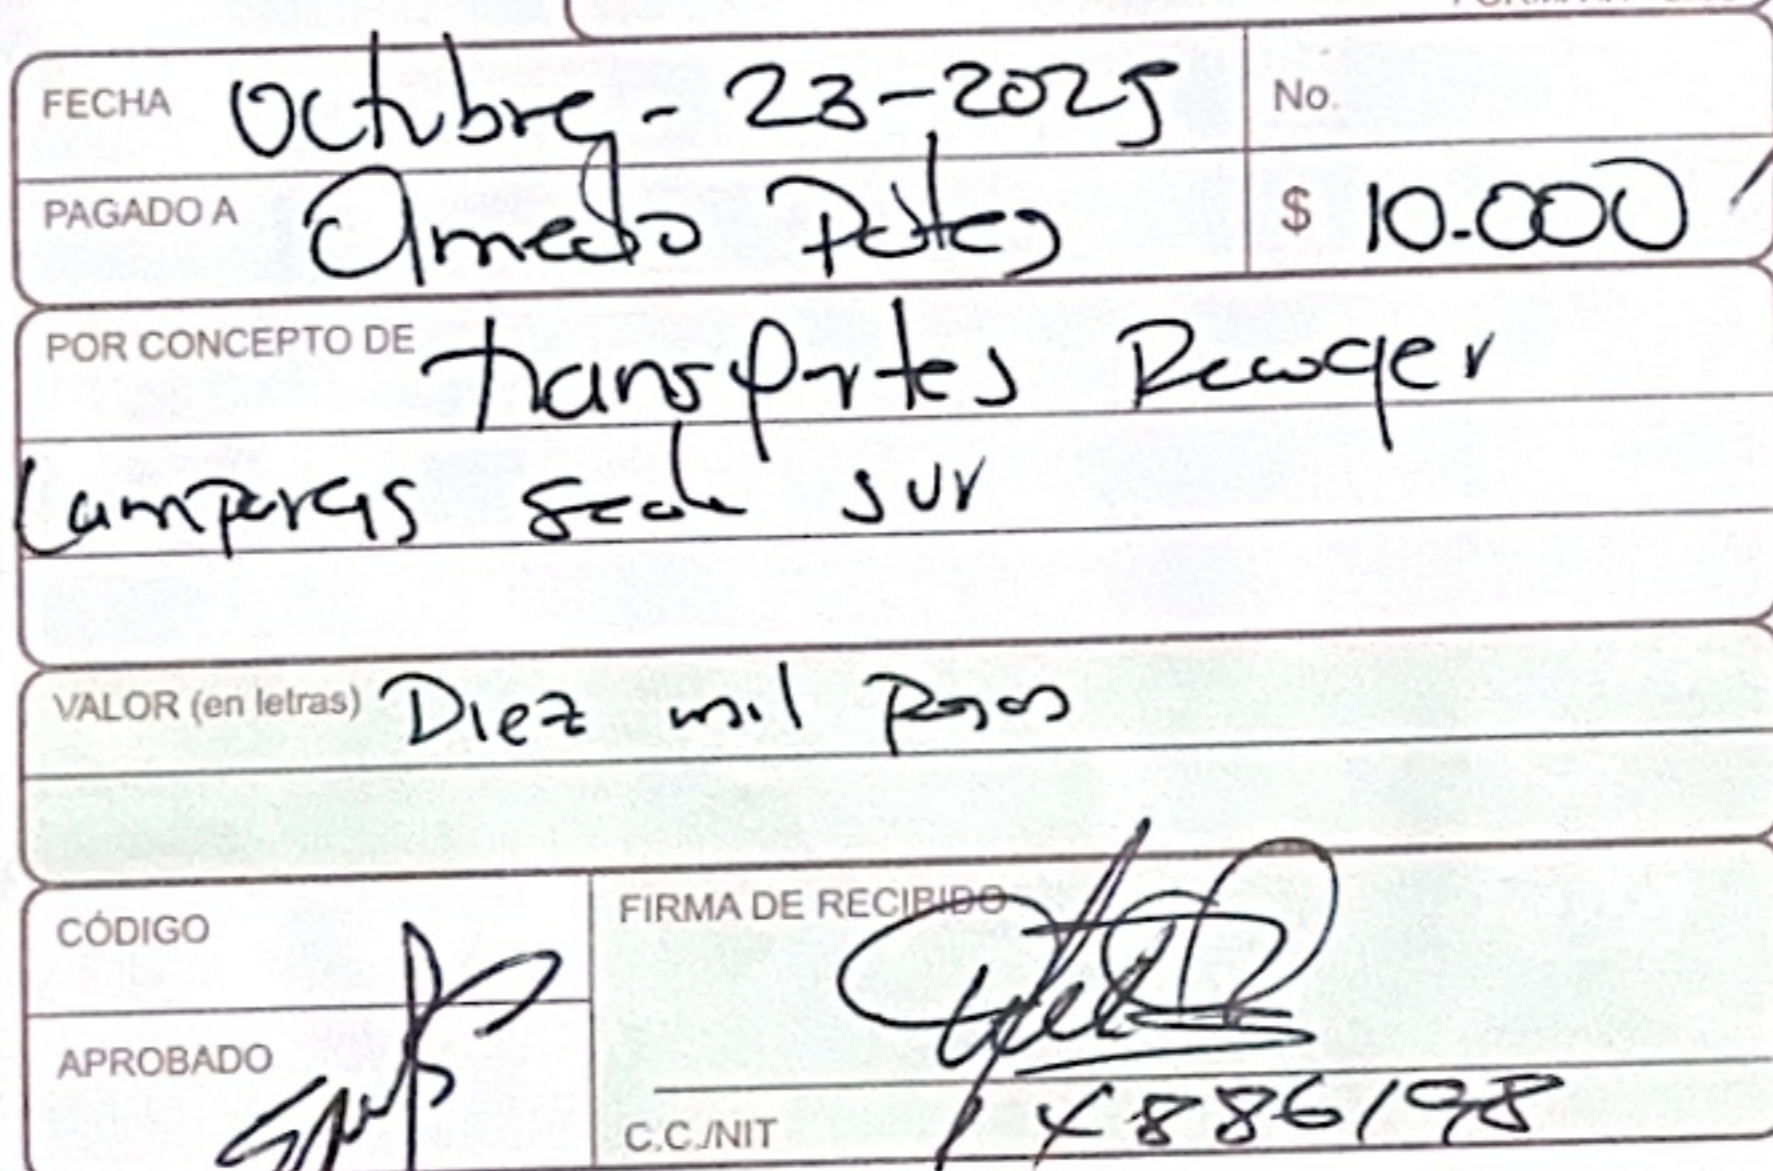 FECHA Octubre - 23-2025 No.
PAGADO A Amedo Potes $ 10.000
POR CONCEPTO DE Transportes Recoger
Lamparas Sede sur
VALOR (en letras) Diez mil Pesos
CÓDIGO FIRMA DE RECIBIDO
APROBADO
C.C./NIT